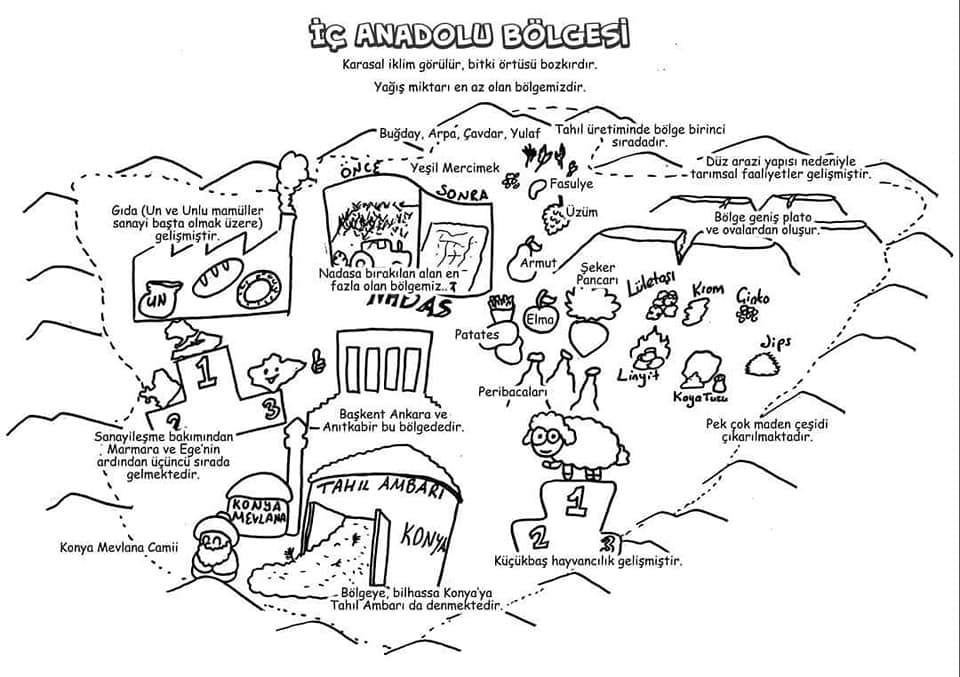 İÇ ANADOLU BÖLGESİ
Karasal iklim görülür, bitki örtüsü bozkırdır.
Yağış miktarı en az olan bölgemizdir.
Buğday, Arpa, Çavdar, Yulaf
Tahıl üretiminde bölge birinci
sıradadır.
Düz arazi yapısı nedeniyle
tarımsal faaliyetler gelişmiştir.
Bölge geniş plato
ve ovalardan oluşur.
ÖNCE
Yeşil Mercimek
SONRA
Fasulye
Üzüm
Armut
Gıda (Un ve Unlu mamüller
sanayi başta olmak üzere)
gelişmiştir.
UN
Nadasa bırakılan alan en
fazla olan bölgemiz..?
NADAS
Şeker
Pancarı
Elma
Patates
Lületaşı
Krom
Çinko
Linyit
Kaya Tuzu
Jips
Peribacaları
1
2
3
Sanayileşme bakımından
Marmara ve Ege'nin
ardından üçüncü sırada
gelmektedir.
Başkent Ankara ve
Anıtkabir bu bölgededir.
Pek çok maden çeşidi
çıkarılmaktadır.
TAHIL AMBARI
KONYA
KONYA
MEVLANA
Konya Mevlana Camii
1
2
3
Küçükbaş hayvancılık gelişmiştir.
Bölgeye, bilhassa Konya'ya
Tahıl Ambarı da denmektedir.